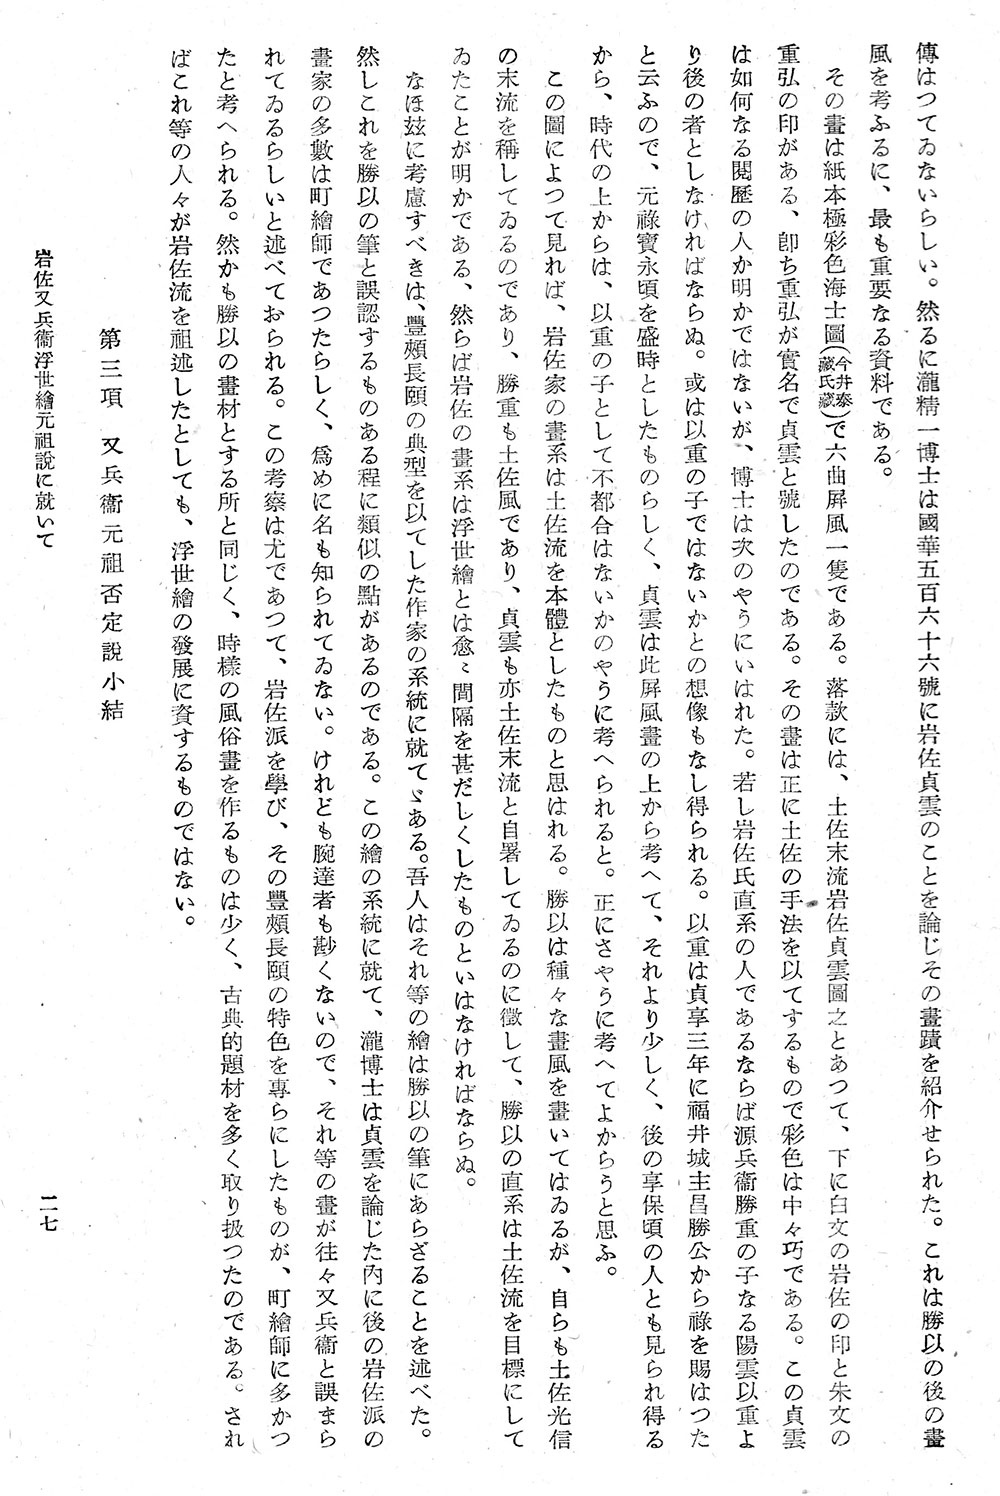 傳はつてゐないらしい。然るに瀧精一博士は國華五百六十六號に岩佐貞雲のことを論じその畫蹟を紹介せられた。これは勝以の後の畫
風を考ふるに、最も重要なる資料である。
その畫は紙本極彩色海士圖(今井泰藏氏藏)で六曲屏風一隻である。落款には、土佐末流岩佐貞雲圖之とあつて、下に白文の岩佐の印と朱文の
重弘の印がある、卽ち重弘が實名で貞雲と號したのである。その畫は正に土佐の手法を以てするもので彩色は中々巧である。この貞雲
は如何なる閱歷の人か明かではないが、博士は次のやうにいはれた。若し岩佐氏直系の人であるならば源兵衞勝重の子なる陽雲以重よ
り後の者としなければならぬ。或は以重の子ではないかとの想像もなし得られる。以重は貞享三年に福井城主昌勝公から祿を賜はつた
と云ふので、元祿寶永頃を盛時としたものらしく、貞雲は此屏風畫の上から考へて、それより少しく、後の享保頃の人とも見られ得る
から、時代の上からは、以重の子として不都合はないかのやうに考へられると。正にさやうに考へてよからうと思ふ。
この圖によつて見れば、岩佐家の畫系は土佐流を本體としたものと思はれる。勝以は種々な畫風を畫いてはゐるが、自らも土佐光信
の末流を稱してゐるのであり、勝重も土佐風であり、貞雲も亦土佐末流と自署してゐるのに徵して、勝以の直系は土佐流を目標にして
ゐたことが明かである、然らば岩佐の畫系は浮世繪とは愈〻間隔を甚だしくしたものといはなければならぬ。
なほ玆に考慮すべきは、豐頰長頤の典型を以てした作家の系統に就てゞある。吾人はそれ等の繪は勝以の筆にあらざることを述べた。
然しこれを勝以の筆と誤認するものある程に類似の點があるのである。この繪の系統に就て、瀧博士は貞雲を論じた內に後の岩佐派の
畫家の多數は町繪師であつたらしく、爲めに名も知られてゐない。けれども腕達者も尠くないので、それ等の畫が往々又兵衞と誤まら
れてゐるらしいと述べておられる。この考察は尤であつて、岩佐派を學び、その豐頰長頤の特色を專らにしたものが、町繪師に多かつ
たと考へられる。然かも勝以の畫材とする所と同じく、時樣の風俗畫を作るものは少く、古典的題材を多く取り扱つたのである。され
ばこれ等の人々が岩佐流を祖述したとしても、浮世繪の發展に資するものではない。
第三項 又兵衞元祖否定說小結
岩佐又兵衞浮世繪元祖說に就いて
二七